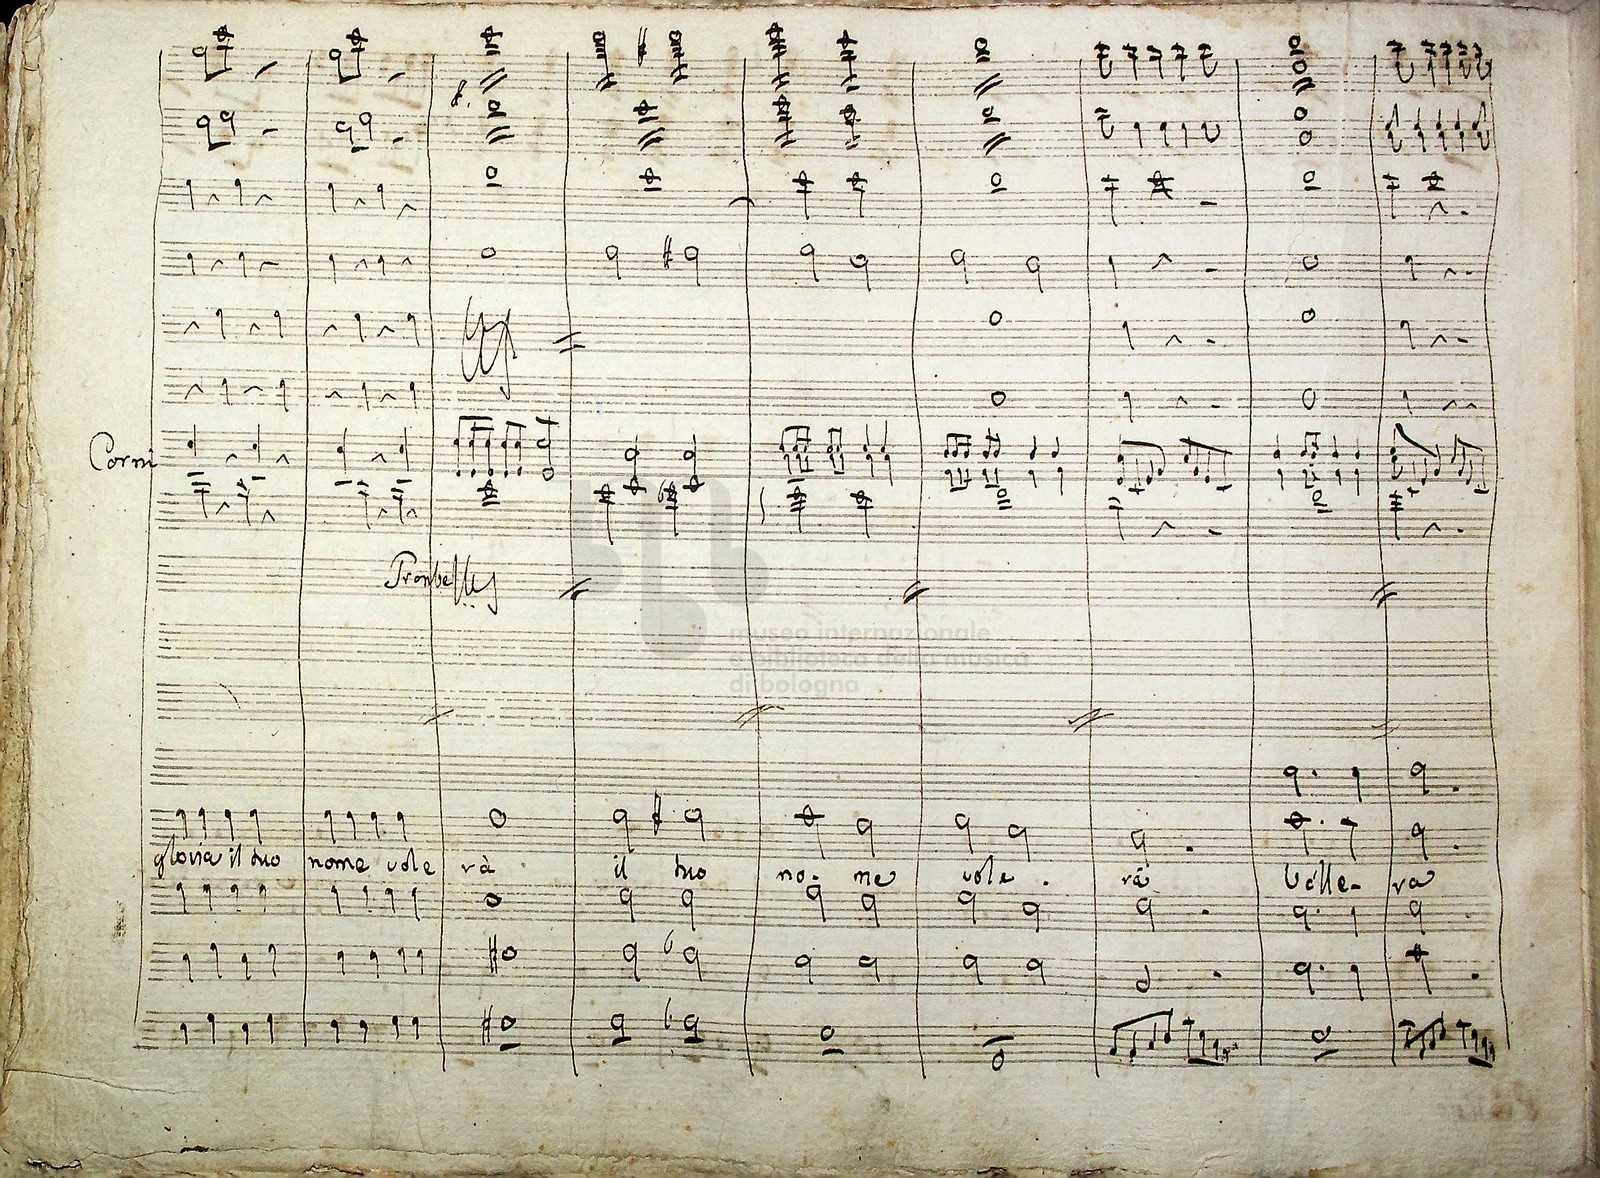 f.
Corni
Trombe
museo internazionale
e biblioteca della musica
di bologna
gloria il tuo nome vole rà il tuo no- me vole . rà Volle- ra